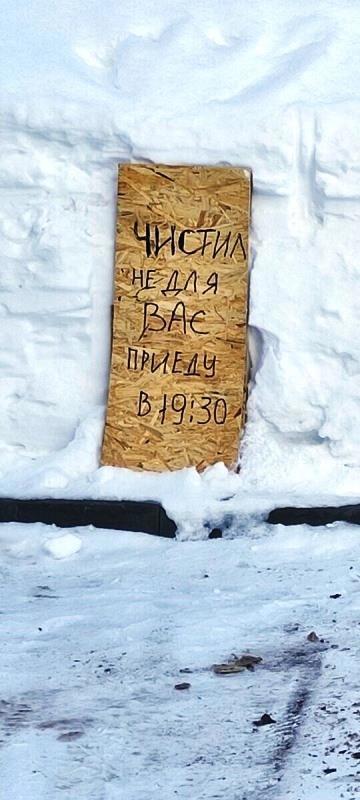 ЧИСТИЛ
НЕ ДЛЯ
ВАС
ПРИЕДУ
В 19:30